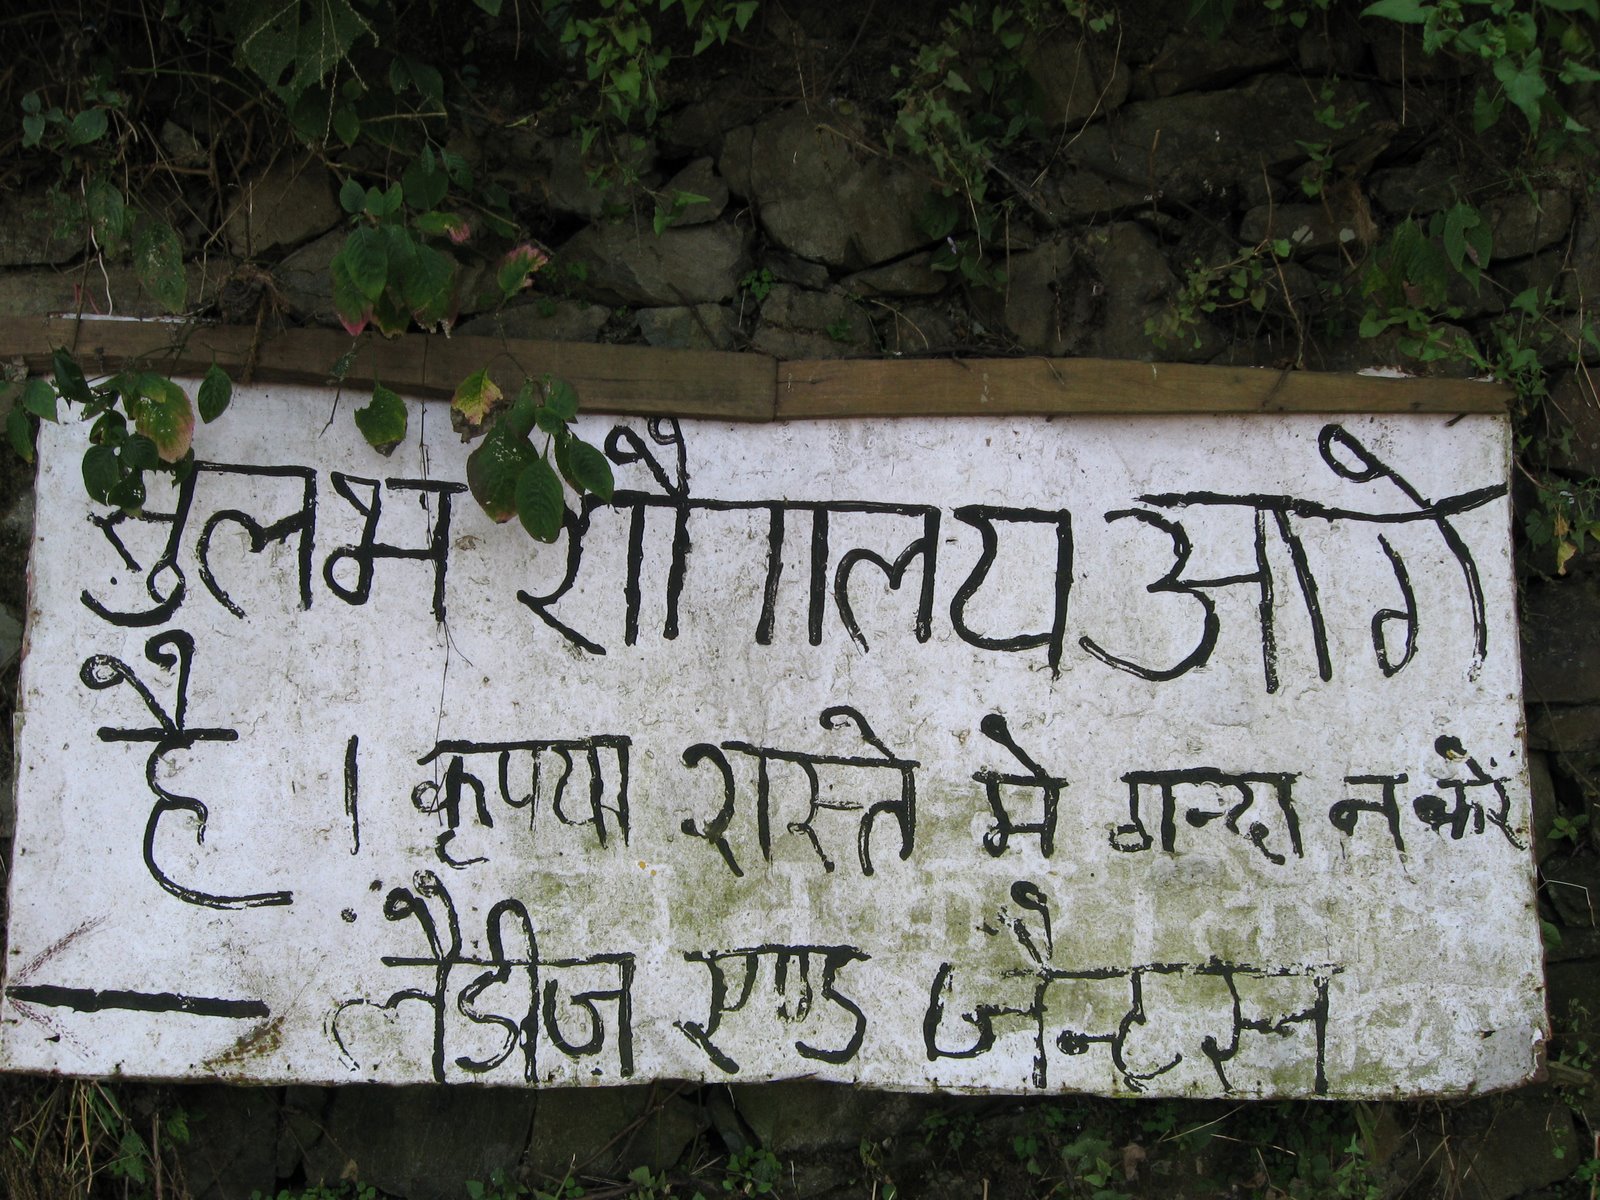 सुलभ शौचालय आगे
है । कृपया रास्ते मे गन्दा न करें
लैडीज एण्ड जैन्टस